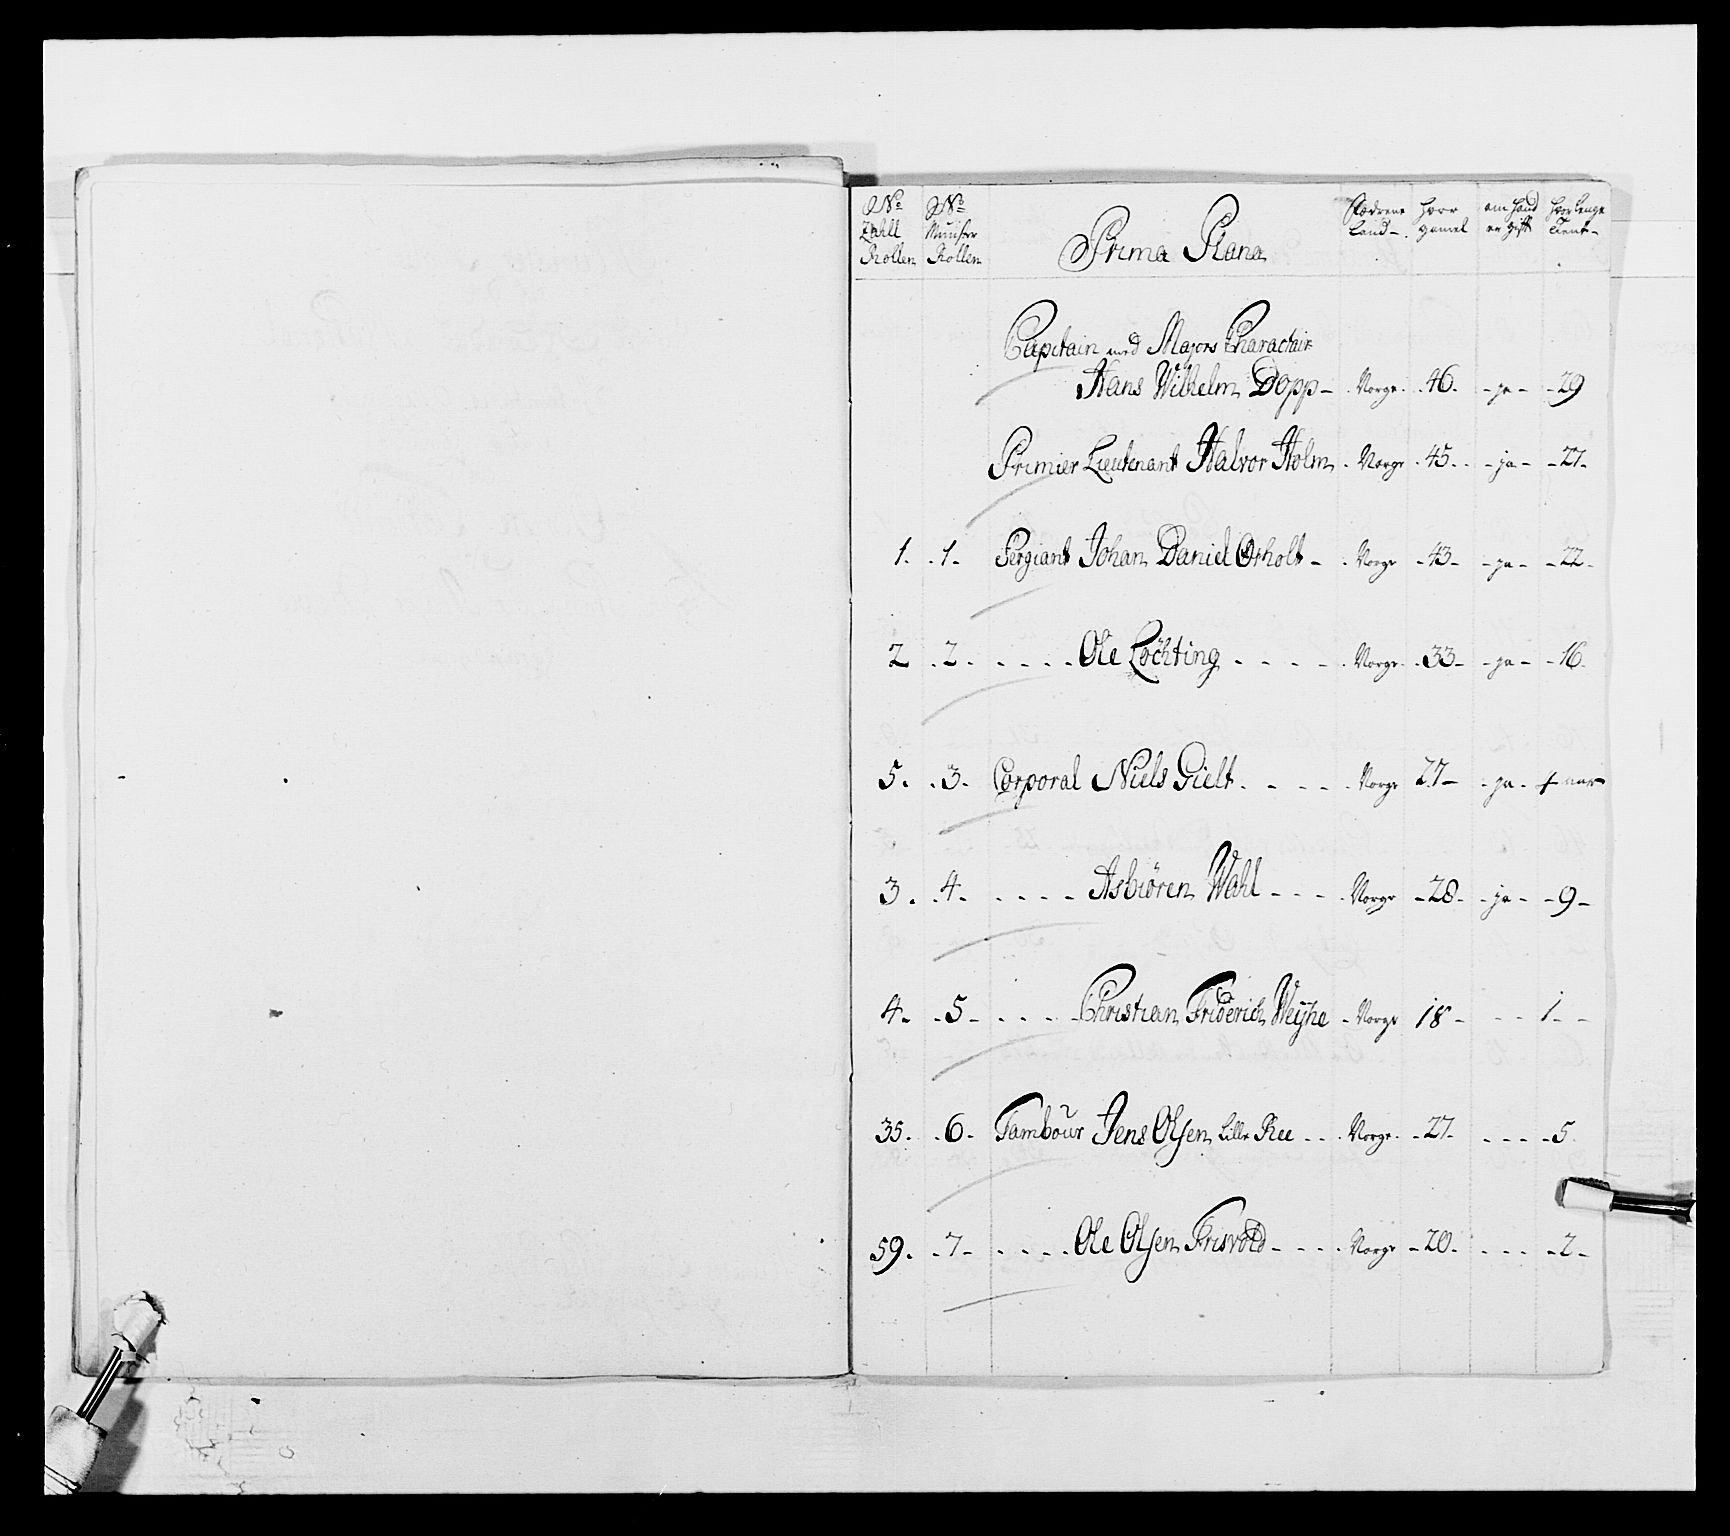 No Zahll Rollen No Munster Rollen Prima Plana Fædrene Land hvor gamel om hand er gift hvor lenge tient
Capitain med Majors Charactair
Hans Wilhelm Dopp - Norge. 46. - ja - - 29
Premier Lieutenant Halvor Holm. Norge . 45. - ja - - 27.
1. . 1 - Sergiant Johan Daniel Orholt - . Norge - 43 - - ja - - 22.
2 . 2 . - - - - Ole Löchting - - - - . Norge. . 33 - - ja - - 16.
5. . 3. Corporal Niels Gielt. - - - . Norge 27 - . ja - aar
3. . 4 - - - - - Asbiören Wahl - - - . Norge - 28. - ja - - 9 -
4. - 5 - - - - - Christian Friderich Weÿhe - Norge 18 - - - 1 - -
35. . 6. Tambour Jens Olsen Lille Ree - - . Norge. - 27. - - - - 5.
59. . 7 - - - - - Ole Olsen Frisvold - - - . Norge - 20. - - - - 2 -